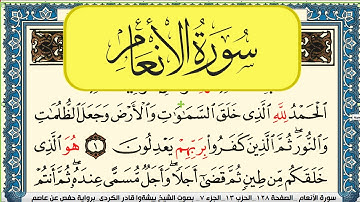 سُورَةُ الْأَنْعَامِ
الْحَمْدُ لِلَّهِ الَّذِي خَلَقَ السَّمَاوَاتِ وَالْأَرْضَ وَجَعَلَ الظُّلُمَاتِ
وَالنُّورَ ۖ ثُمَّ الَّذِينَ كَفَرُوا بِرَبِّهِمْ يَعْدِلُونَ ١ هُوَ الَّذِي
خَلَقَكُمْ مِنْ طِينٍ ثُمَّ قَضَىٰ أَجَلًا ۖ وَأَجَلٌ مُسَمًّى عِنْدَهُ ۖ ثُمَّ أَنْتُمْ
سورة الأنعام _الصفحة ١٢٨_ الحزب ١٣_ الجزء ٧_ بصوت الشيخ بيشةوا قادر الكردي_ برواية حفص عن عاصم